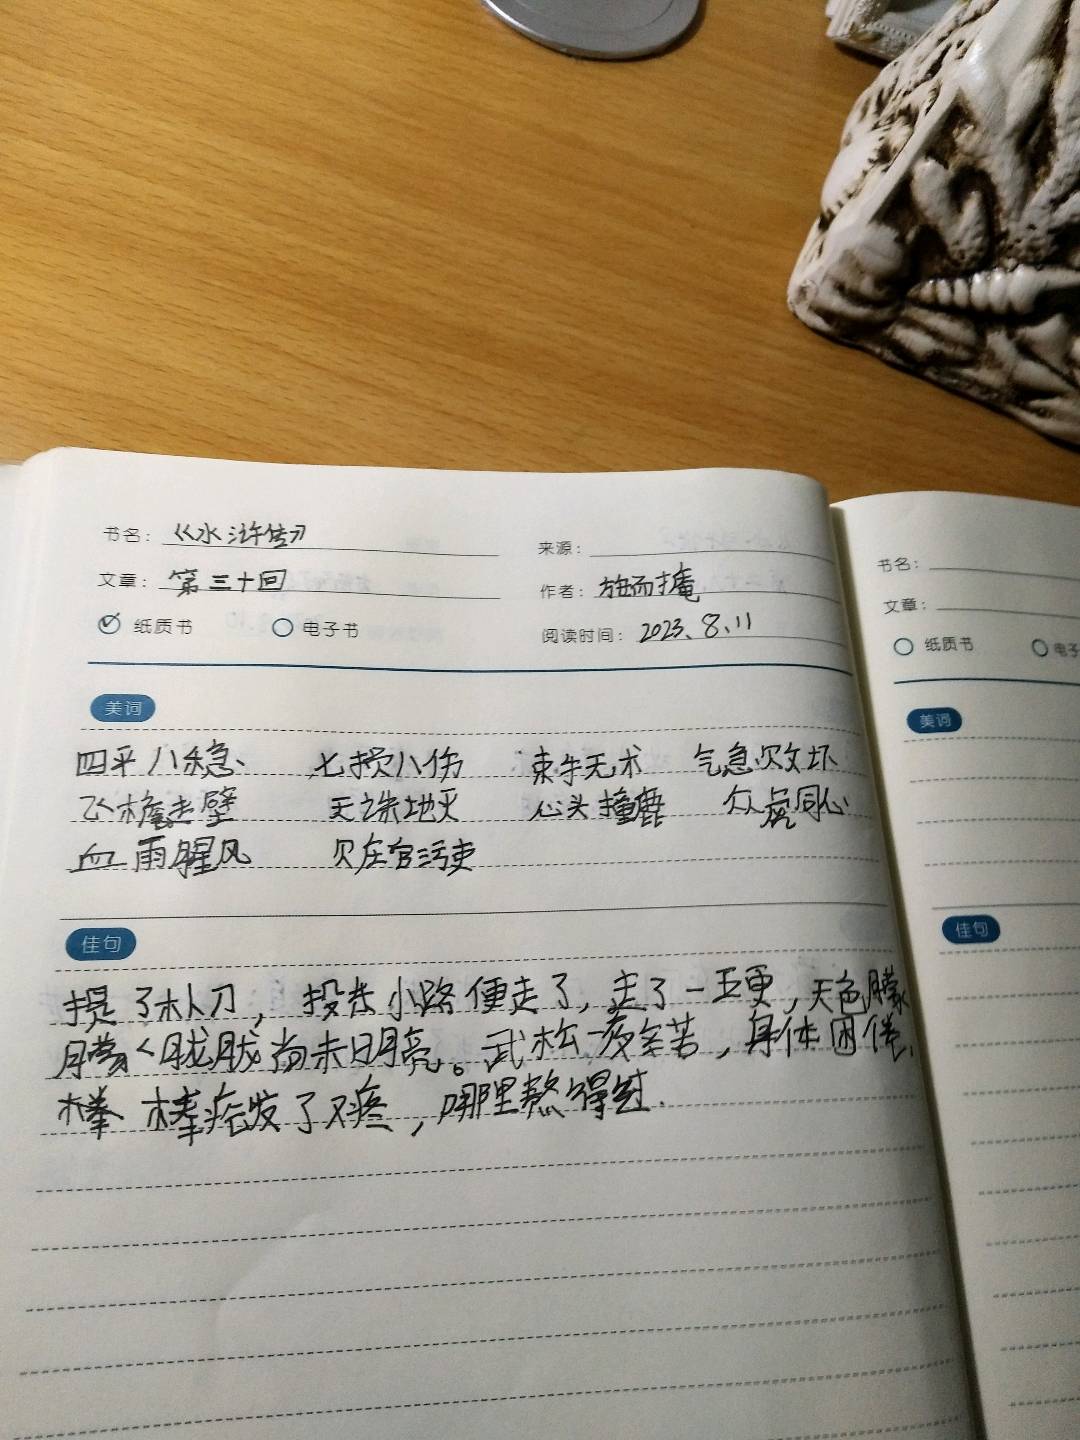 书名：《水浒传》
来源：
文章：第三十回
作者：施耐庵
纸质书 电子书
阅读时间：2023、8、11
美词
四平八稳 七损八伤 束手无术 气急败坏
飞檐走壁 天诛地灭 心头撞鹿 众虎同心
血雨腥风 贝左官污吏
佳句
提了朴刀，投东小路便走了，走了一五更，天色朦
朦胧胧尚未明亮。武松一夜辛苦，身体困倦、
棒疮发了又疼，哪里熬得过.
书名：
文章：
纸质书 电子
美词
佳句